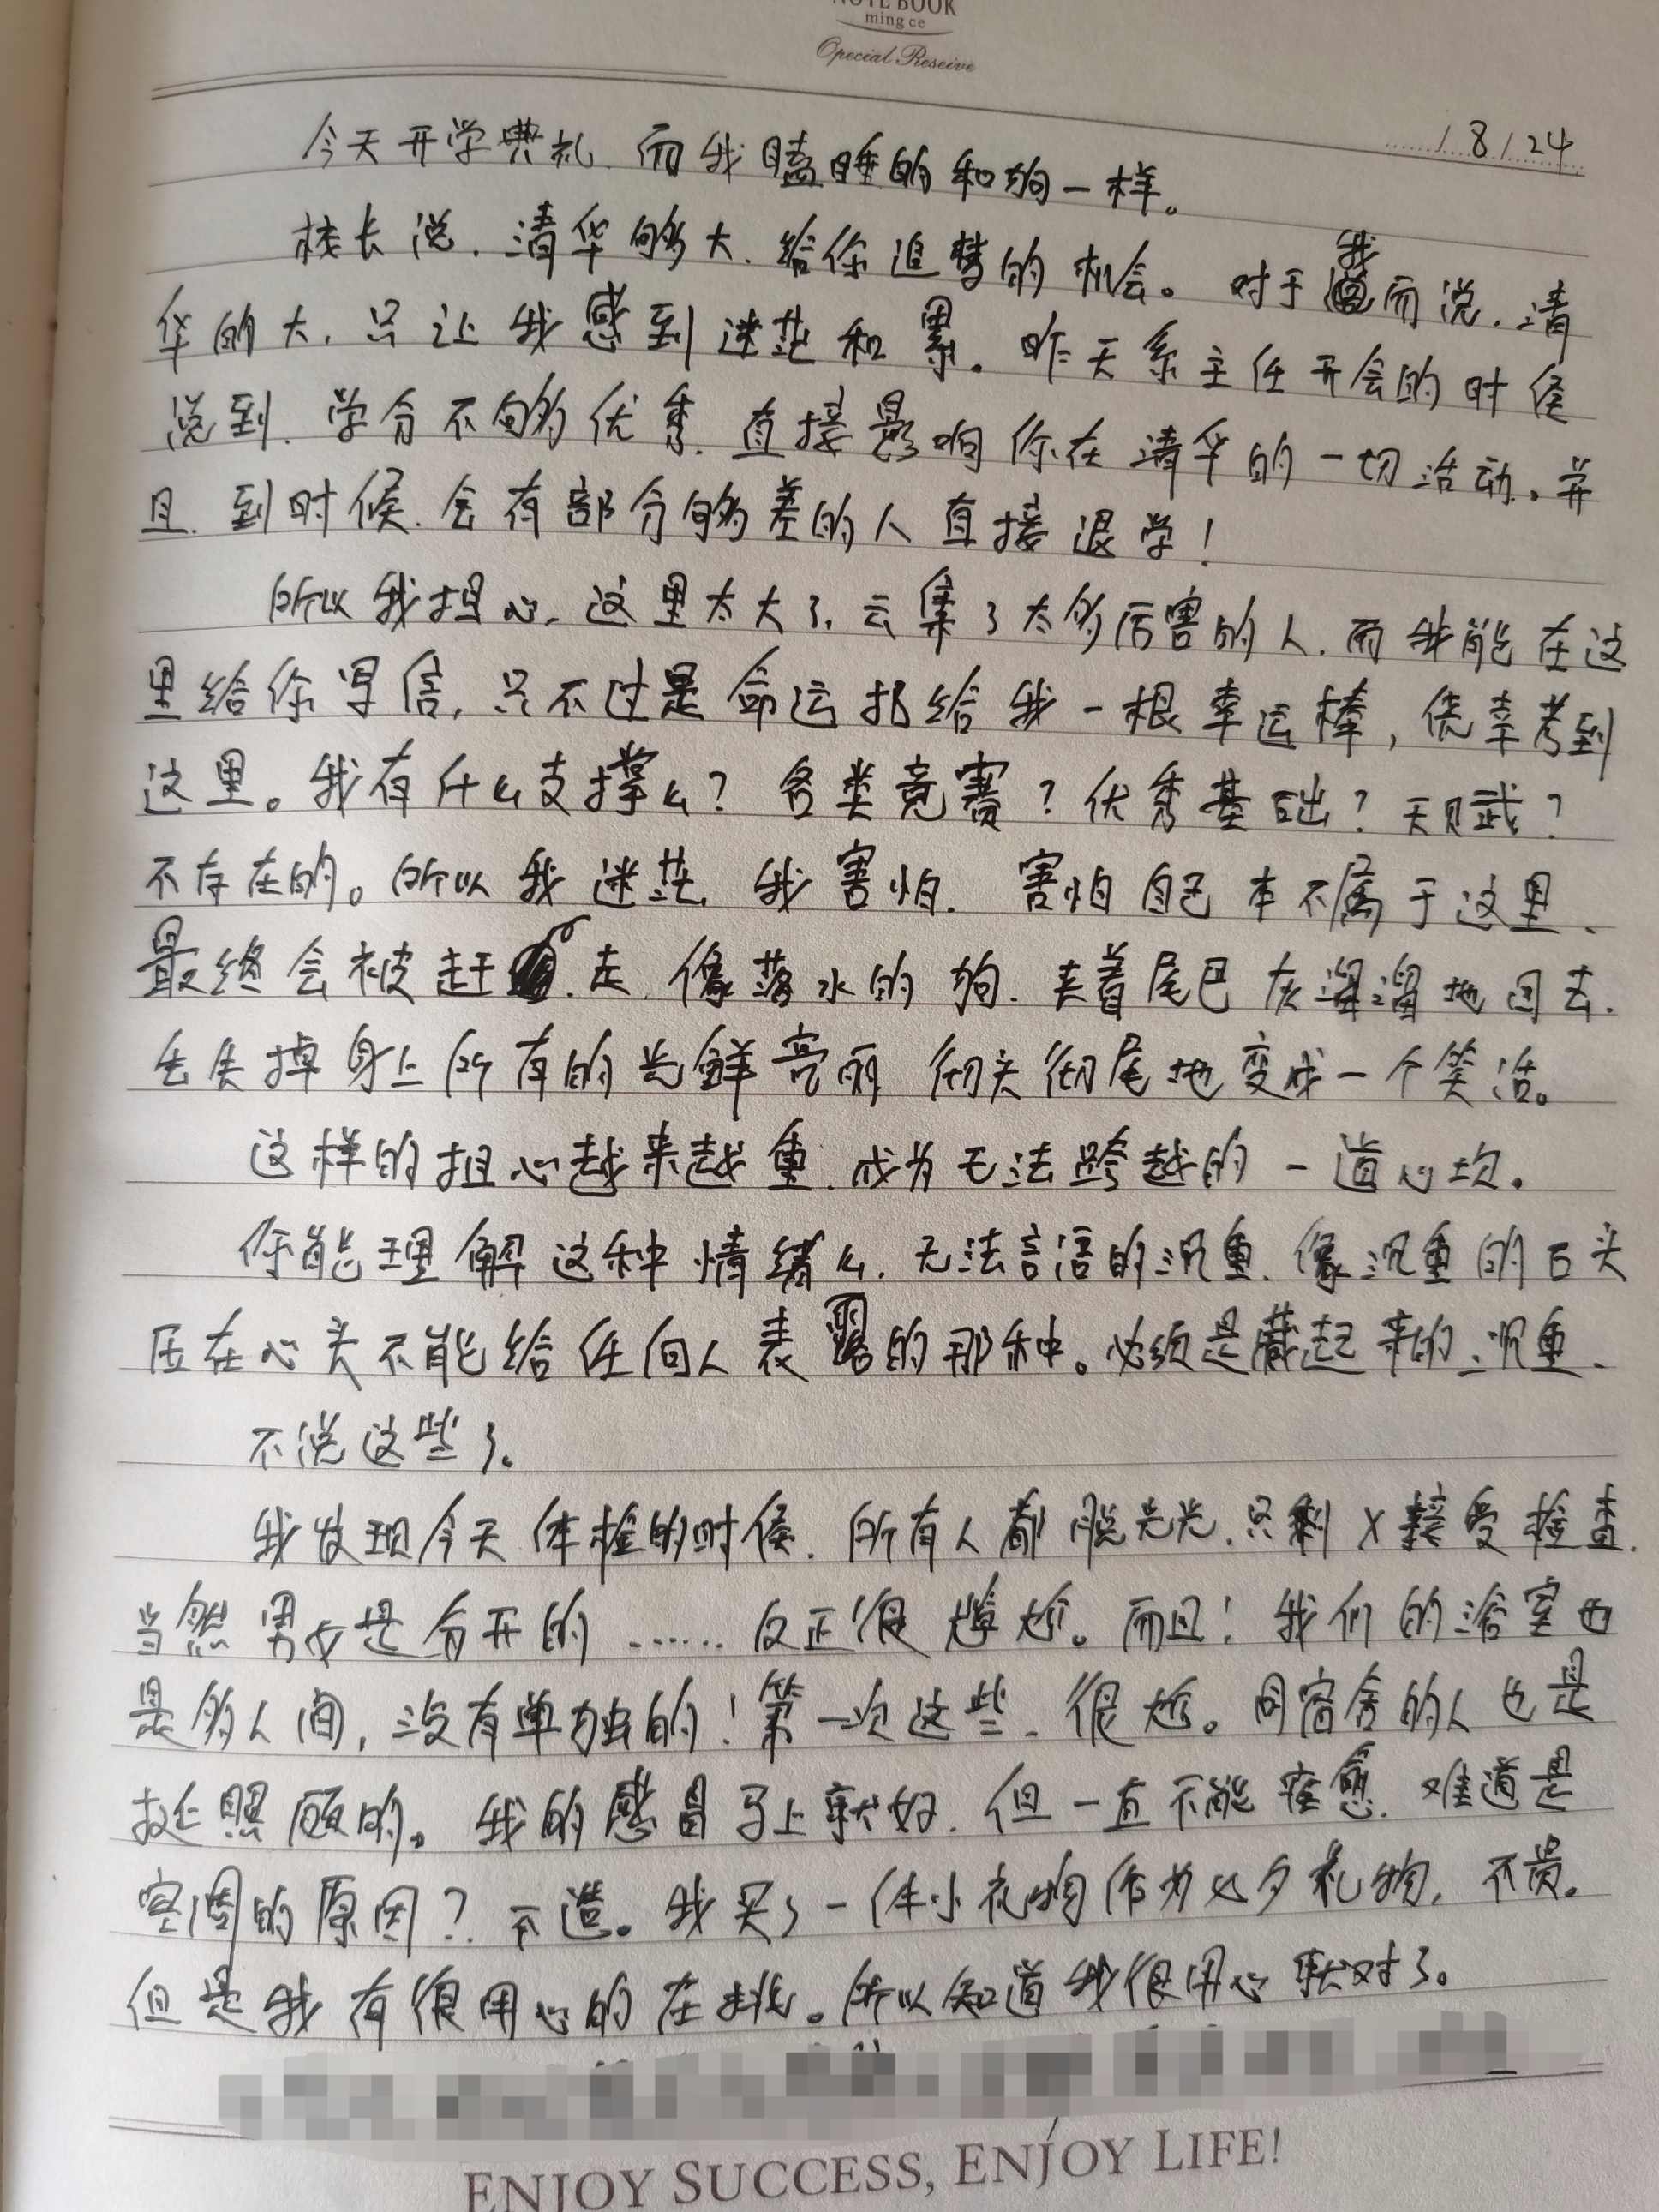 NOTE BOOK
ming ce
Special Reseive
/ 8 / 24
今天开学典礼.而我瞌睡的和狗一样。
校长说.清华够大.给你追梦的机会。对于我而说.清
华的大.只让我感到迷茫和累。昨天系主任开会的时候
说到.学分不够优秀.直接影响你在清华的一切活动。并
且.到时候.会有部分够差的人直接退学!
所以我担心.这里太大了.云集了太多厉害的人.而我能在这
里给你写信,只不过是命运扔给我一根幸运棒,侥幸考到
这里。我有什么支撑么?各类竞赛?优秀基础?天赋?
不存在的。所以我迷茫.我害怕.害怕自己本不属于这里、
最终会被赶.走.像落水的狗.夹着尾巴灰溜溜地回去.
丢失掉身上所有的光鲜亮丽 彻头彻尾地变成一个笑话。
这样的担心越来越重.成为无法跨越的一道心坎。
你能理解这种情绪么.无法言语的沉重.像沉重的石头
压在心头不能给任何人表露的那种。必须是藏起来的沉重.
不说这些了。
我发现今天体检的时候.所有人都脱光光.只剩X接受检查.
当然男女是分开的......反正很尴尬。而且!我们的浴室也
是多人间,没有单独的!第一次这些.很尬。同宿舍的人也是
挺照顾的。我的感冒马上就好.但一直不能痊愈.难道是
空调的原因?不造。我买了一件小礼物作为七夕礼物.不贵。
但是我有很用心的在挑。所以知道我很用心就对了。
ENJOY SUCCESS, ENJOY LIFE!